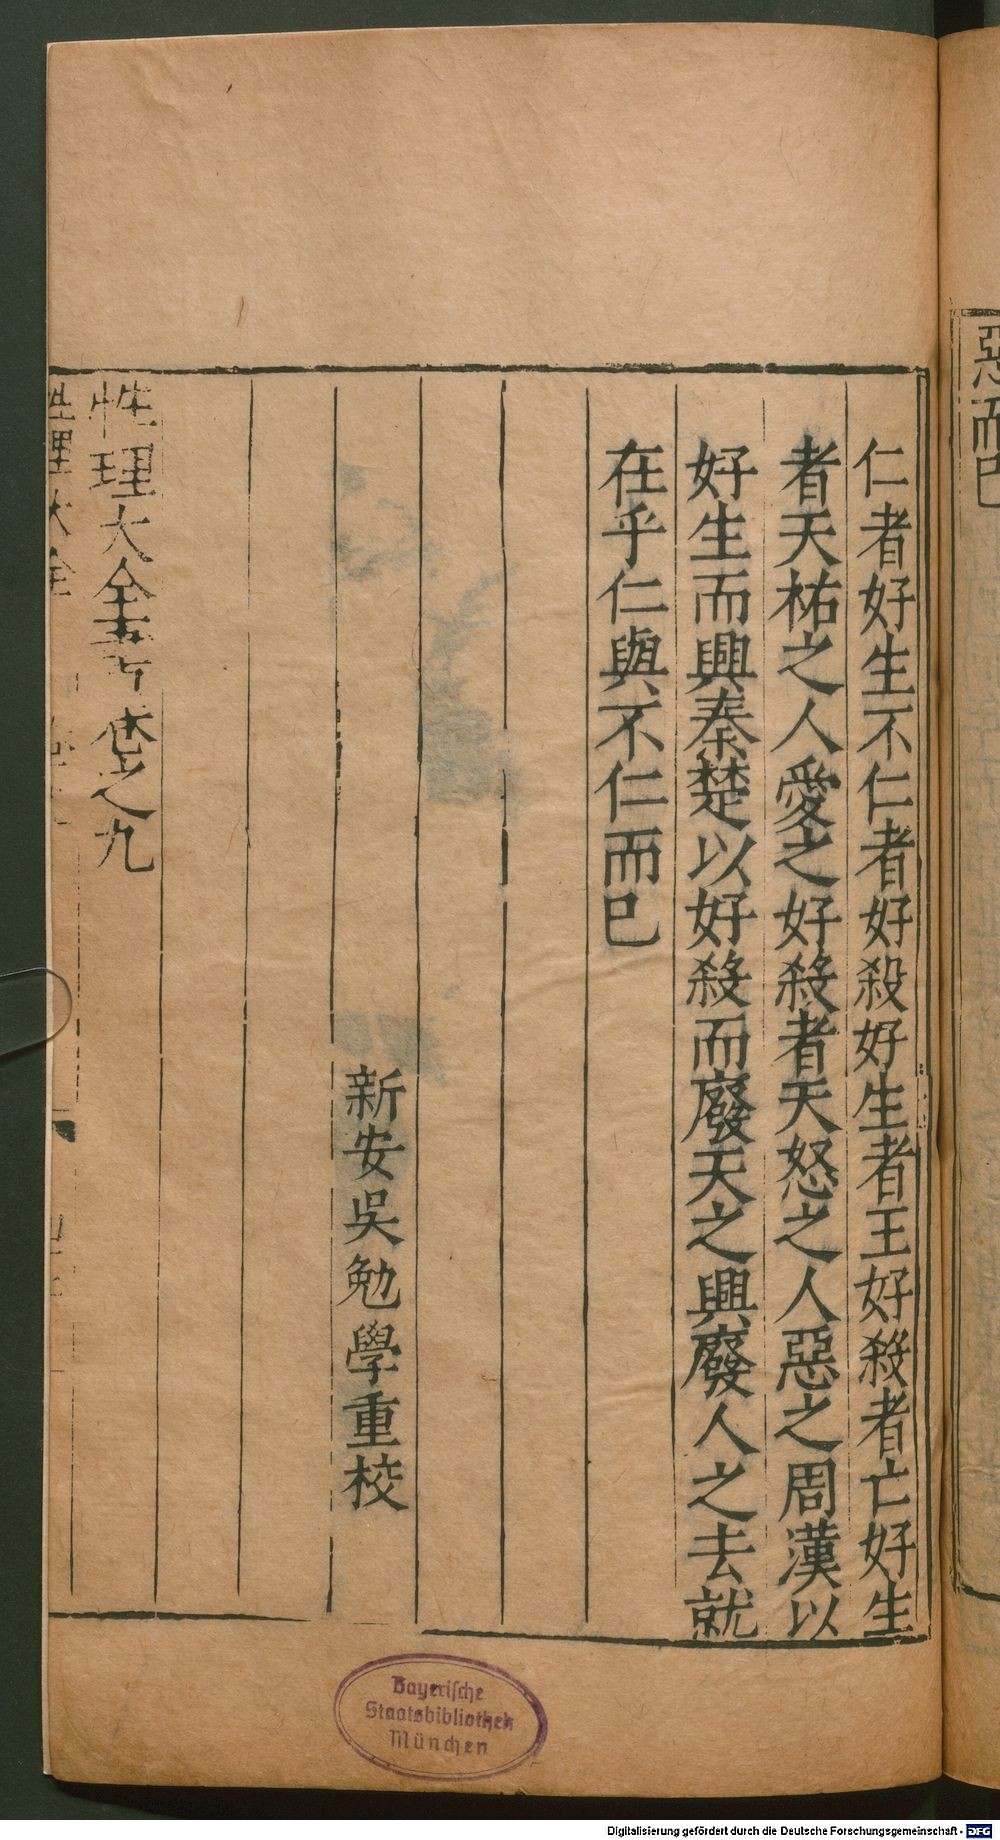 惡而已
仁者好生不仁者好殺好生者王好殺者亡好生
者天祐之人愛之好殺者天怒之人惡之周漢以
好生而興秦楚以好殺而廢天之興廢人之去就
在乎仁與不仁而已
新安吳勉學重校
性理大全書卷之九
性理大全
Bayerische
Staatsbibliothek
München
Digitalisierung gefördert durch die Deutsche Forschungsgemeinschaft - DFG